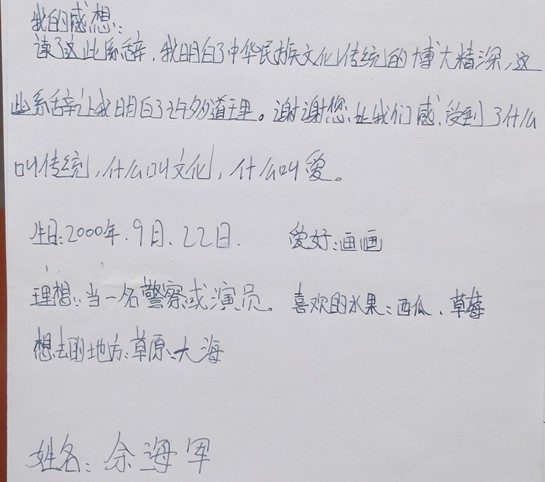 我的感想:
读了这些系辞，我明白了中华民族文化传统的博大精深，这
些系辞让我明白了许多道理。谢谢您让我们感受到了什么
叫传统，什么叫文化，什么叫爱。
生日:2000年.9月、22日. 爱好:画画
理想:当一名警察或演员。喜欢的水果:西瓜、草莓
想去的地方:草原、大海
姓名:余海军